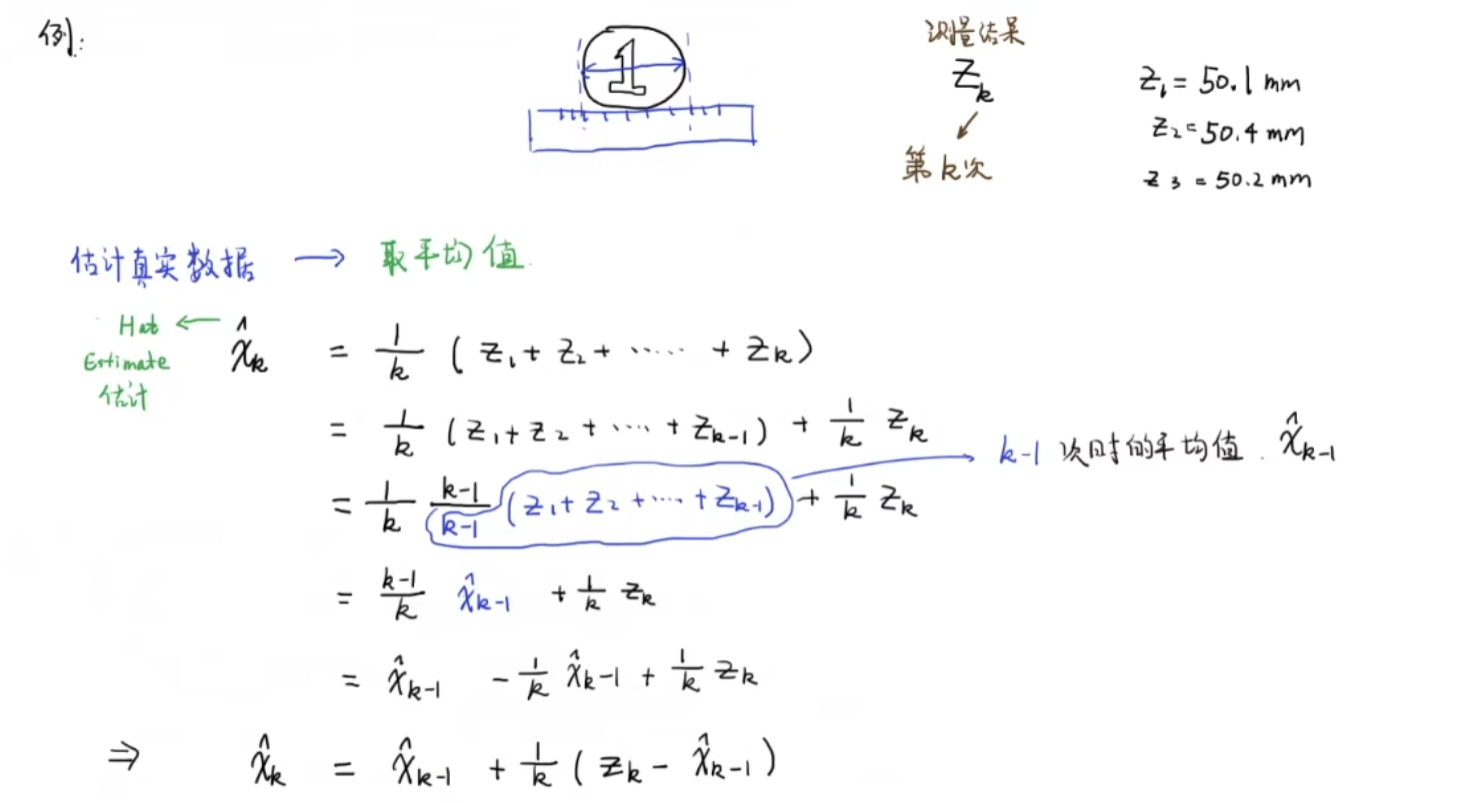 例:
1
测量结果
Z_k
第k次
Z_1 = 50.1 mm
Z_2 = 50.4 mm
Z_3 = 50.2 mm
估计真实数据 → 取平均值.
Hat ← x̂_k = 1/k (Z_1 + Z_2 + ...... + Z_k)
Estimate
估计
= 1/k (Z_1 + Z_2 + .... + Z_{k-1}) + 1/k Z_k
= 1/k (k-1)/(k-1) (Z_1 + Z_2 + .... + Z_{k-1}) + 1/k Z_k → k-1 次时的平均值. x̂_{k-1}
= (k-1)/k x̂_{k-1} + 1/k Z_k
= x̂_{k-1} - 1/k x̂_{k-1} + 1/k Z_k
⇒ x̂_k = x̂_{k-1} + 1/k (Z_k - x̂_{k-1})